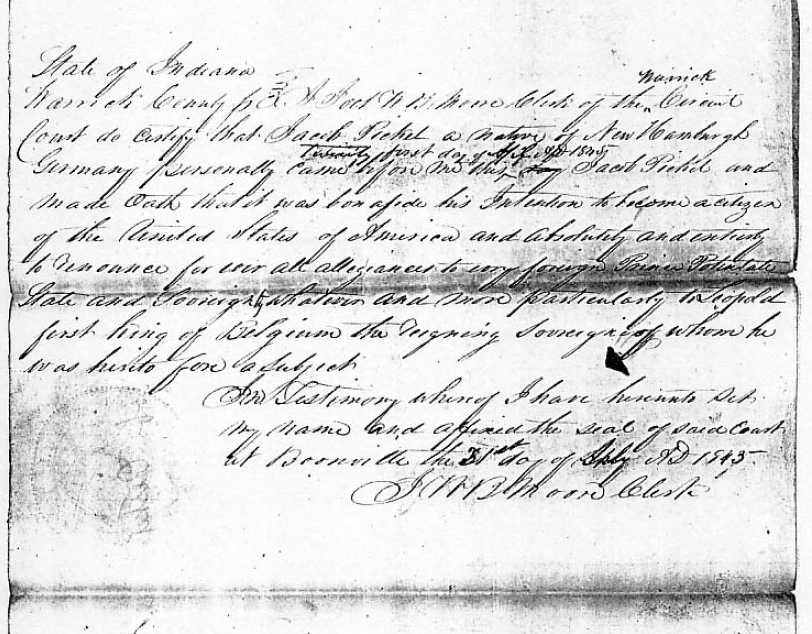 State of Indiana
Warrick
Warrick County I Joel W B Moore Clerk of the ‸ Circuit
Court do certify that Jacob Pickel a native of New Hamburgh
first day of AD 1845
Germany personally came before me this Jacob Pickel and
made Oath that it was bonafide his Intention to become a citizen
of the United States of America and absolutely and entirely
to renounce for ever all allegiances to every foreign Prince Potentate
State and Sovereignty whatever and more particularly to Leopold
first King of Belgium the reigning Sovereign of whom he
was hereto fore a subject
In Testimony whereof I have hereunto set
my name and affixed the seal of said Court
at Boonville the 31st day of July AD 1845.
J W B Moore Clerk